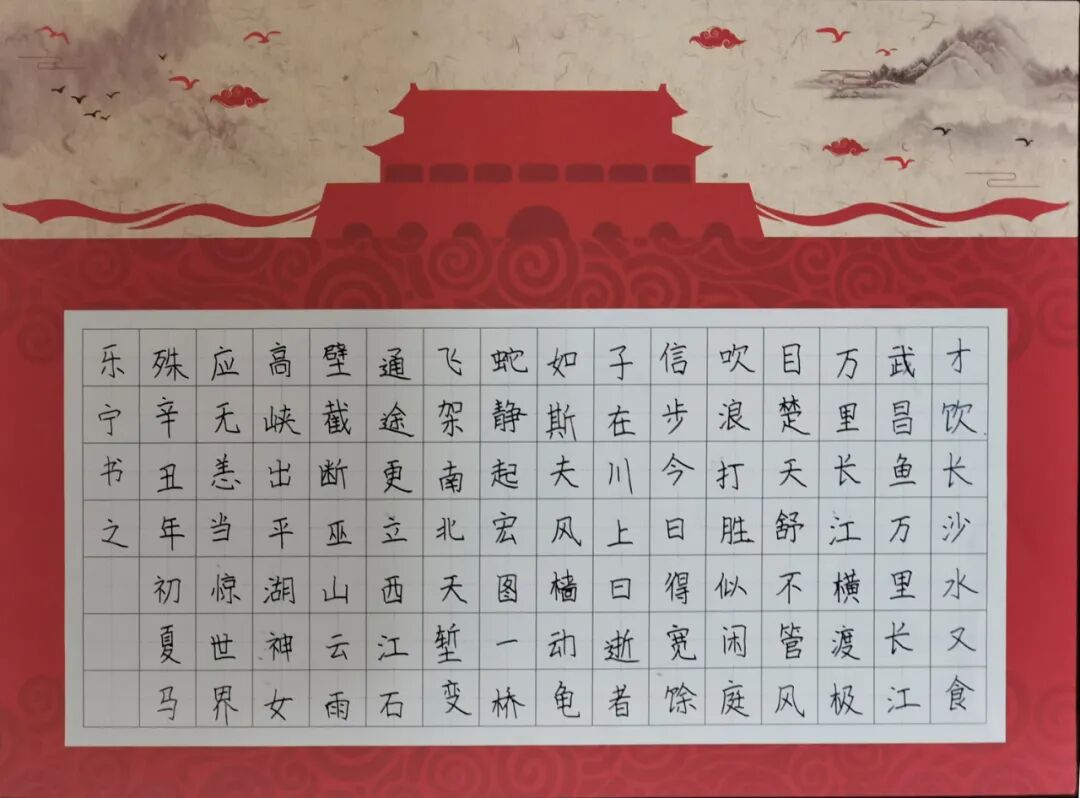 才饮长沙水又食
武昌鱼万里长江
万里长江横渡极
目楚天舒不管风
吹浪打胜似闲庭
信步今日得宽馀
子在川上曰逝者
如斯夫风樯动龟
蛇静起宏图一桥
飞架南北天堑变
通途更立西江石
壁截断巫山云雨
高峡出平湖神女
应无恙当惊世界
殊辛丑年初夏马
乐宁书之